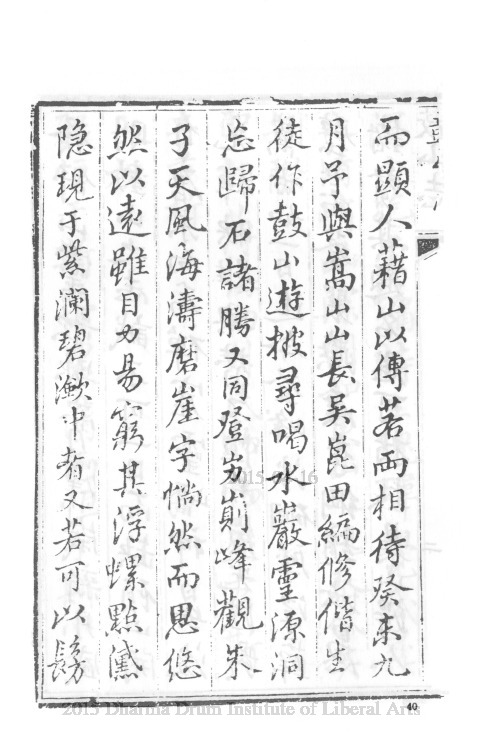 而顯人藉山以傳若兩相待癸未九
月予與嵩山山長吳崑田編修偕生
徒作鼓山遊披尋喝水巖靈源洞
忘歸石諸勝又同登屴崱峰觀朱
子天風海濤磨崖字惝然而思悠
然以遠雖目力易窮其浮螺點黛
隐現于紫瀾碧漵中者又若可以髣
2015
16
40
2015 Dharma Drum Institute of Liberal Arts